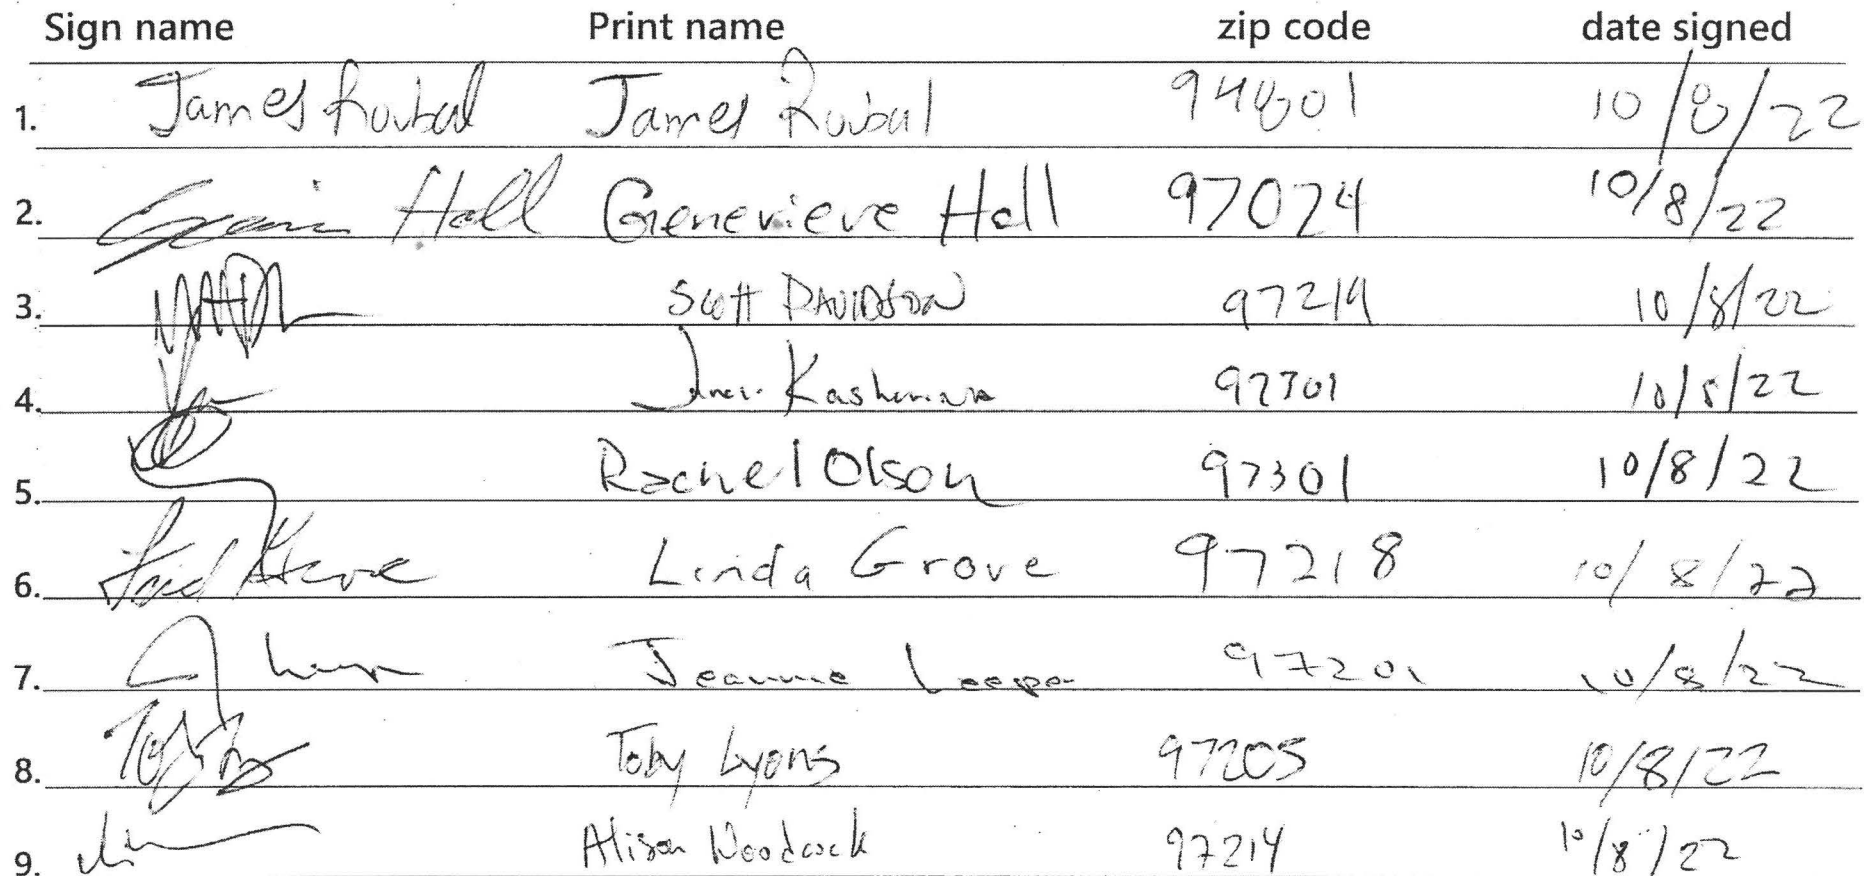 Sign name Print name zip code date signed
1. James Roubal James Roubal 94801 10/8/22
2. Hall Genevieve Hall 97024 10/8/22
3. Scott DAVIDSON 97219 10/8/22
4. 97301 10/8/22
5. Rachel Olson 97301 10/8/22
6. Linda Grove 97218 10/8/22
7. Jeanne Leeper 97201 10/8/22
8. Toby Lyons 97205 10/8/22
9. Alison Woodcock 97214 10/8/22